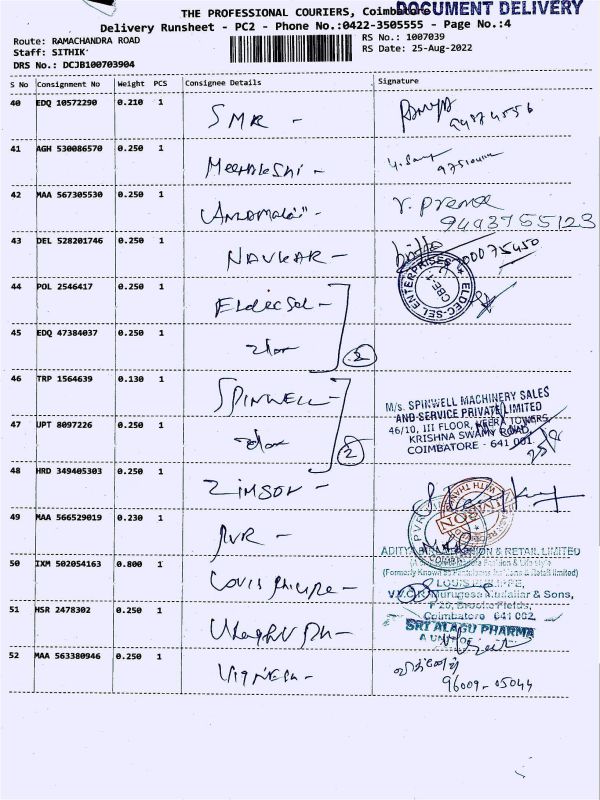 THE PROFESSIONAL COURIERS, Coimbatore
DOCUMENT DELIVERY
Delivery Runsheet - PC2 - Phone No.:0422-3505555 - Page No.:4
Route: RAMACHANDRA ROAD
RS No.: 1007039
Staff: SITHIK
RS Date: 25-Aug-2022
DRS No.: DCJB100703904
S No Consignment No Weight PCS Consignee Details Signature
40 EDQ 10572290 0.210 1 SMR -
41 AGH 530086570 0.250 1 Meenakshi -
42 MAA 567305530 0.250 1 Annamalai - V. Prema
9443755123
43 DEL 528201746 0.250 1 NAVKAR -
44 POL 2546417 0.250 1 Eldecsel -
ELDEC-SEL ENTERPRISES
CBE
45 EDQ 47384037 0.250 1
2
46 TRP 1564639 0.130 1 SPINWELL -
M/s. SPINWELL MACHINERY SALES
AND SERVICE PRIVATE LIMITED
46/10, III FLOOR, MEERA TOWERS,
KRISHNA SWAMY ROAD,
COIMBATORE - 641 001.
47 UPT 8097226 0.250 1
2
48 HRD 349405303 0.250 1 ZIMSON -
49 MAA 566529019 0.230 1 PVR -
50 IXM 502054163 0.800 1 Louis Philippe -
ADITYA BIRLA FASHION & RETAIL LIMITED
LOUIS PHILIPPE,
V.V.C.R. Murugesa Mudaliar & Sons,
F 20, Brooke Fields,
Coimbatore 641 002.
51 HSR 2478302 0.250 1
SRI ALAGU PHARMA
52 MAA 563380946 0.250 1 Vignesh -
96009-05044